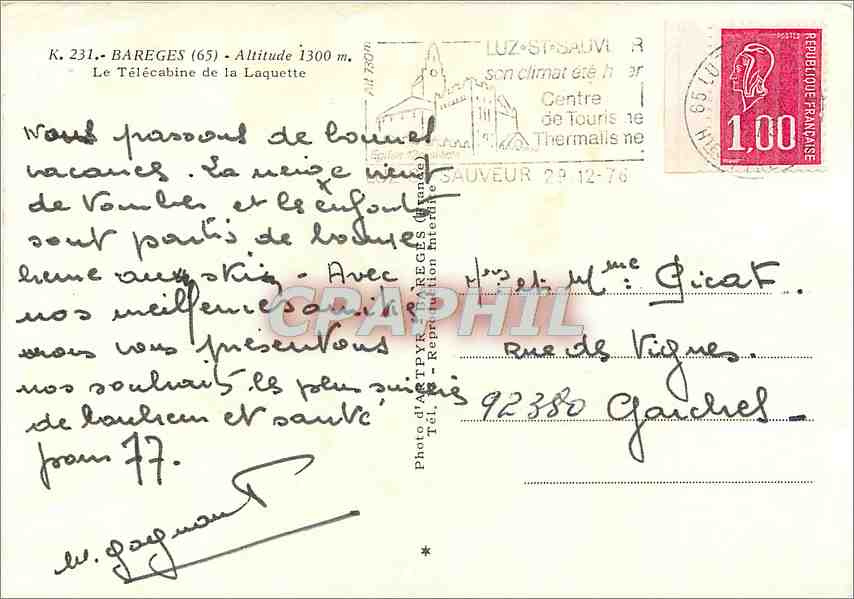 K. 231.- BAREGES (65) - Altitude 1300 m.
Le Télécabine de la Laquette
Nous passons de bonnes
vacances. La neige vient
de tomber et les enfants
sont partis de bonne
heure aux skis - Avec
nos meilleures amitiés
nous vous présentons
nos souhaits les plus sincères
de bonheur et santé
pour 77.
M. Gagnant
Alt 730m
LUZ-ST-SAUVEUR
son climat été hiver
Centre
de Tourisme
Thermalisme
LUZ SAUVEUR 29-12-76
65 LUZ
POSTES
REPUBLIQUE FRANÇAISE
1,00
Photo d'ART PYR BAREGES (France)
Tél. - Reproduction Interdite
CPAPHIL
Mr et Mme: Picat.
Rue des Vignes.
92380 Garches -
*